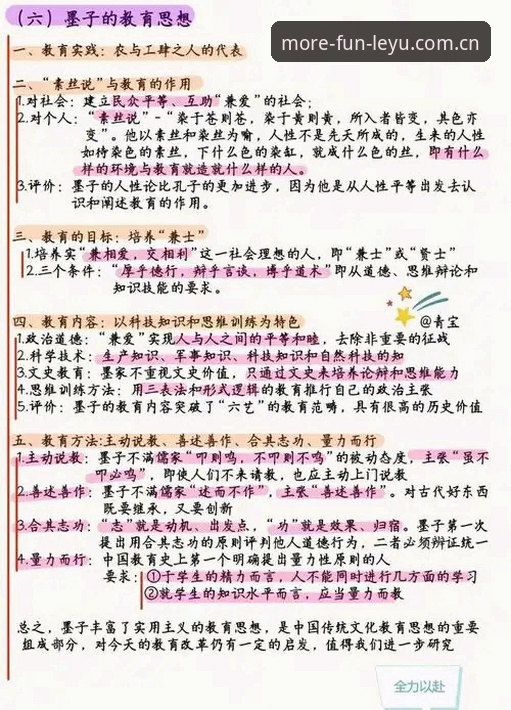 （六）墨子的教育思想
more-fun-leyu.com.cn
一、教育实践：农与工肆之人的代表
二、“素丝说”与教育的作用
1.对社会：建立民众平等、互助“兼爱”的社会；
2.对个人：“素丝说”-“染于苍则苍，染于黄则黄，所入者皆变，其色亦
变”。他以素丝和染丝为喻，人性不是先天所成的，生来的人性
如待染色的素丝，下什么色的染缸，就成什么色的丝，即有什么
样的环境与教育就造就什么样的人。
3.评价：墨子的人性论比孔子的更加进步，因为他是从人性平等出发去认
识和阐述教育的作用。
三、教育的目标：培养“兼士”
1.培养实“兼相爱，交相利”这一社会理想的人，即“兼士”或“贤士”
2.三个条件：“厚乎德行，辩乎言谈，博乎道术”即从道德、思维辩论和
知识技能的要求。
四、教育内容：以科技知识和思维训练为特色
@青宝
1.政治道德：“兼爱”实现人与人之间的平等和睦，去除非重要的征战
2.科学技术：生产知识、军事知识、科技知识和自然科技的知
3.文史教育：墨家不重视文史价值，只通过文史来培养论辩和思维能力
4.思维训练方法：用三表法和形式逻辑的教育推行自己的政治主张
5.评价：墨子的教育内容突破了“六艺”的教育范畴，具有很高的历史价值
五、教育方法:主动说教、善述善作、合其志功、量力而行
1.主动说教：墨子不满儒家“叩则鸣，不叩则不鸣”的被动态度，主张“虽不
叩必鸣”，即使人们不来请教，也应主动上门说教
2.善述善作：墨子不满儒家“述而不作”，主张“善述善作”。对古代好东西
既要继承，又要创新
3.合其志功：“志”就是动机、出发点，“功”就是效果、归宿。墨子第一次
提出用合其志功的原则评判他人道德行为，二者必须辨证统一
4.量力而行：中国教育史上第一个明确提出量力性原则的人
要求：①于学生的精力而言，人不能同时进行几方面的学习
②就学生的知识水平而言，应当量力而教
总之，墨子丰富了实用主义的教育思想，是中国传统文化教育思想的重要
组成部分，对今天的教育改革仍有一定的启发，值得我们进一步研究
全力以赴